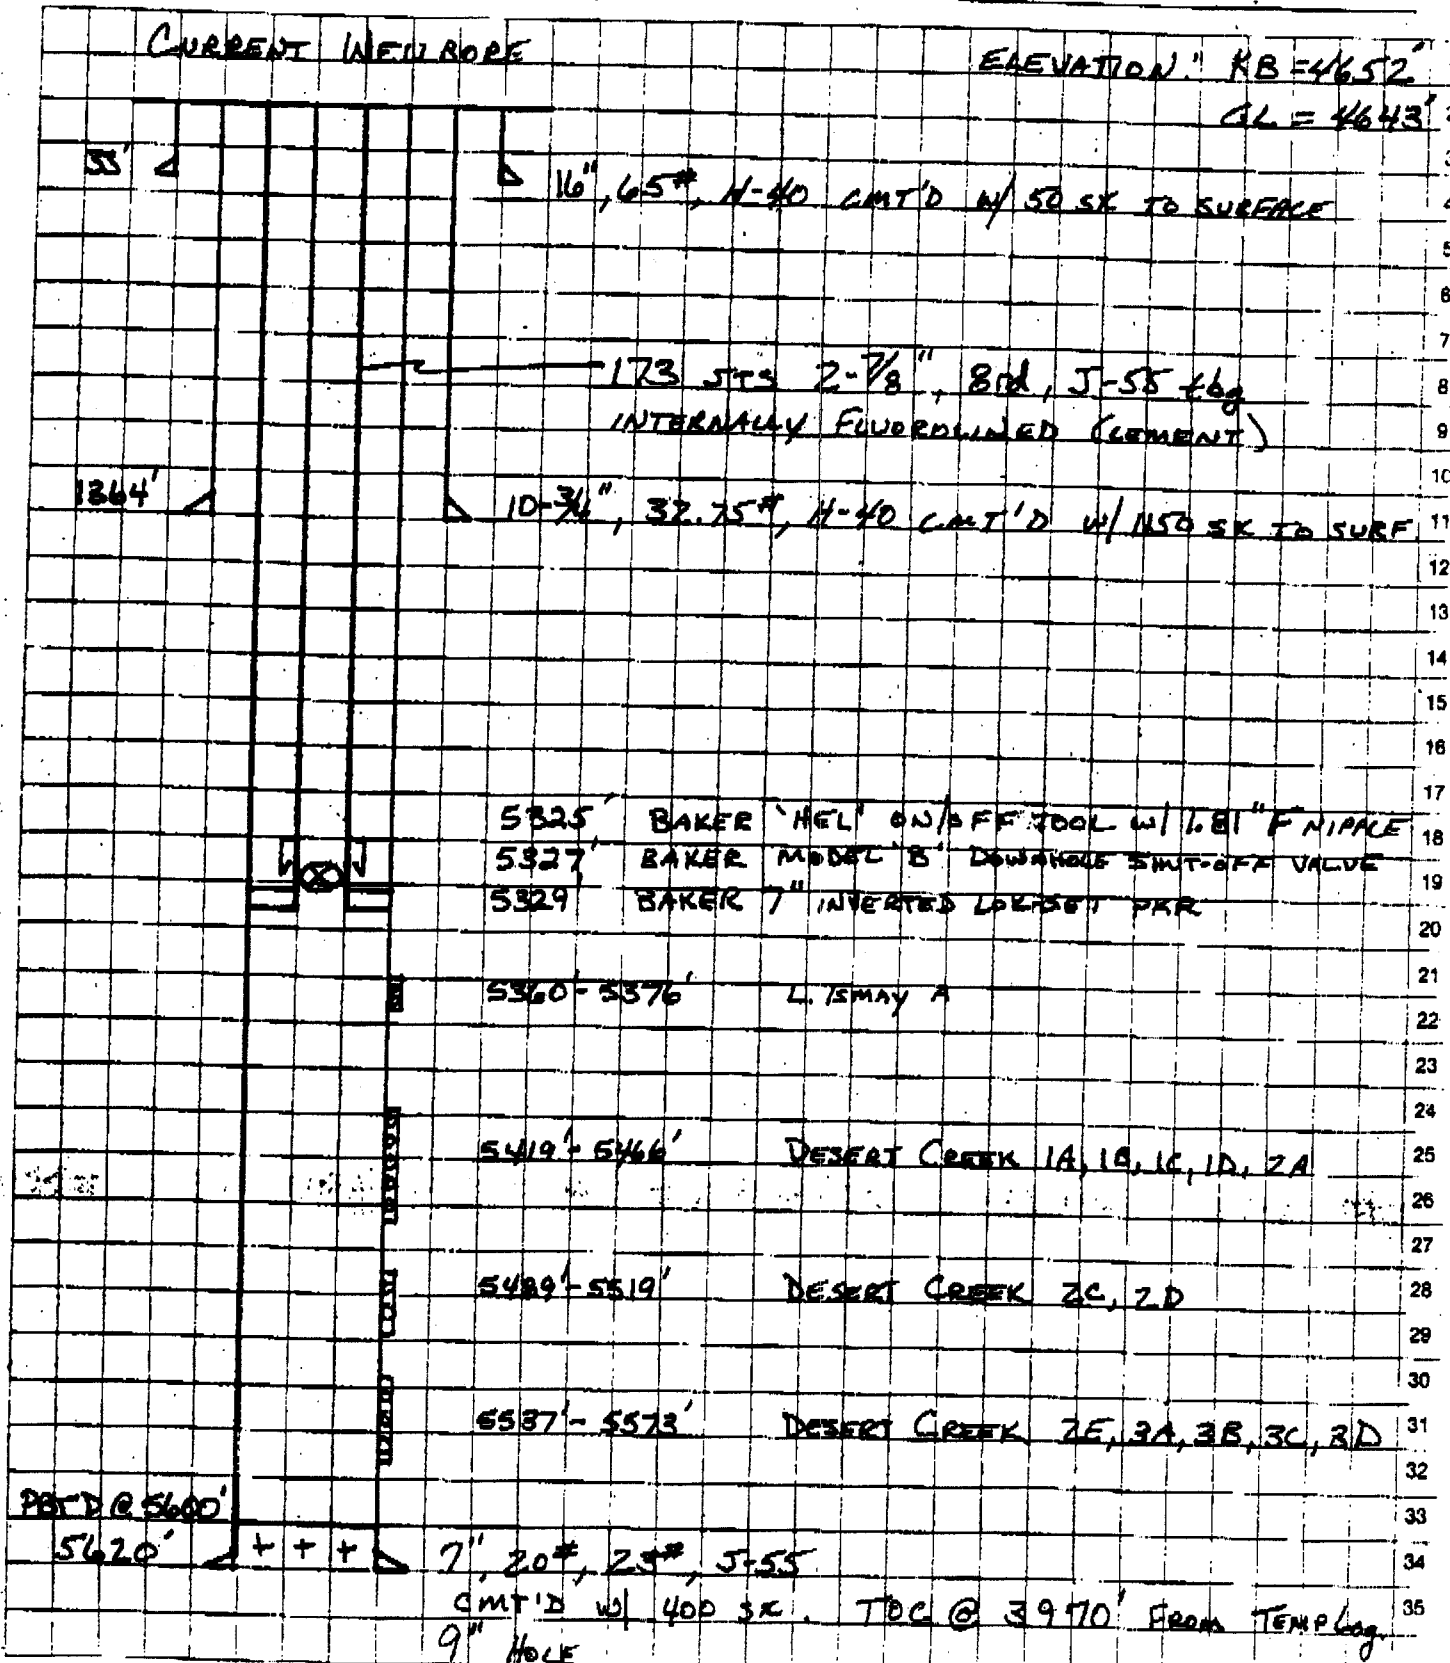 CURRENT WELLBORE
ELEVATION: KB = 4652'
GL = 4643'
55'
16", 65#, H-40 CMT'D W/ 50 SX TO SURFACE
173 JTS 2-7/8", 8rd, J-55 tbg
INTERNALLY FLUOROLINED (CEMENT)
1364'
10-3/4", 32.75#, H-40 CMT'D W/ 1150 SX TO SURF.
5325' BAKER 'HEL' ON/OFF TOOL W/ 1.81" F NIPPLE
5327' BAKER MODEL 'B' DOWNHOLE SHUT-OFF VALVE
5329' BAKER 7" INVERTED LOK-SET PKR
5360'-5376' L. ISMAY A
5419'-5466' DESERT CREEK 1A, 1B, 1C, 1D, 2A
5489'-5519' DESERT CREEK 2C, 2D
5537'-5573' DESERT CREEK 2E, 3A, 3B, 3C, 3D
PBTD @ 5600'
5620'
+ + +
7", 20#, 23#, J-55
CMT'D W/ 400 SX. TOC @ 3970' FROM TEMP Log.
9" HOLE
2
3
4
5
6
7
8
9
10
11
12
13
14
15
16
17
18
19
20
21
22
23
24
25
26
27
28
29
30
31
32
33
34
35